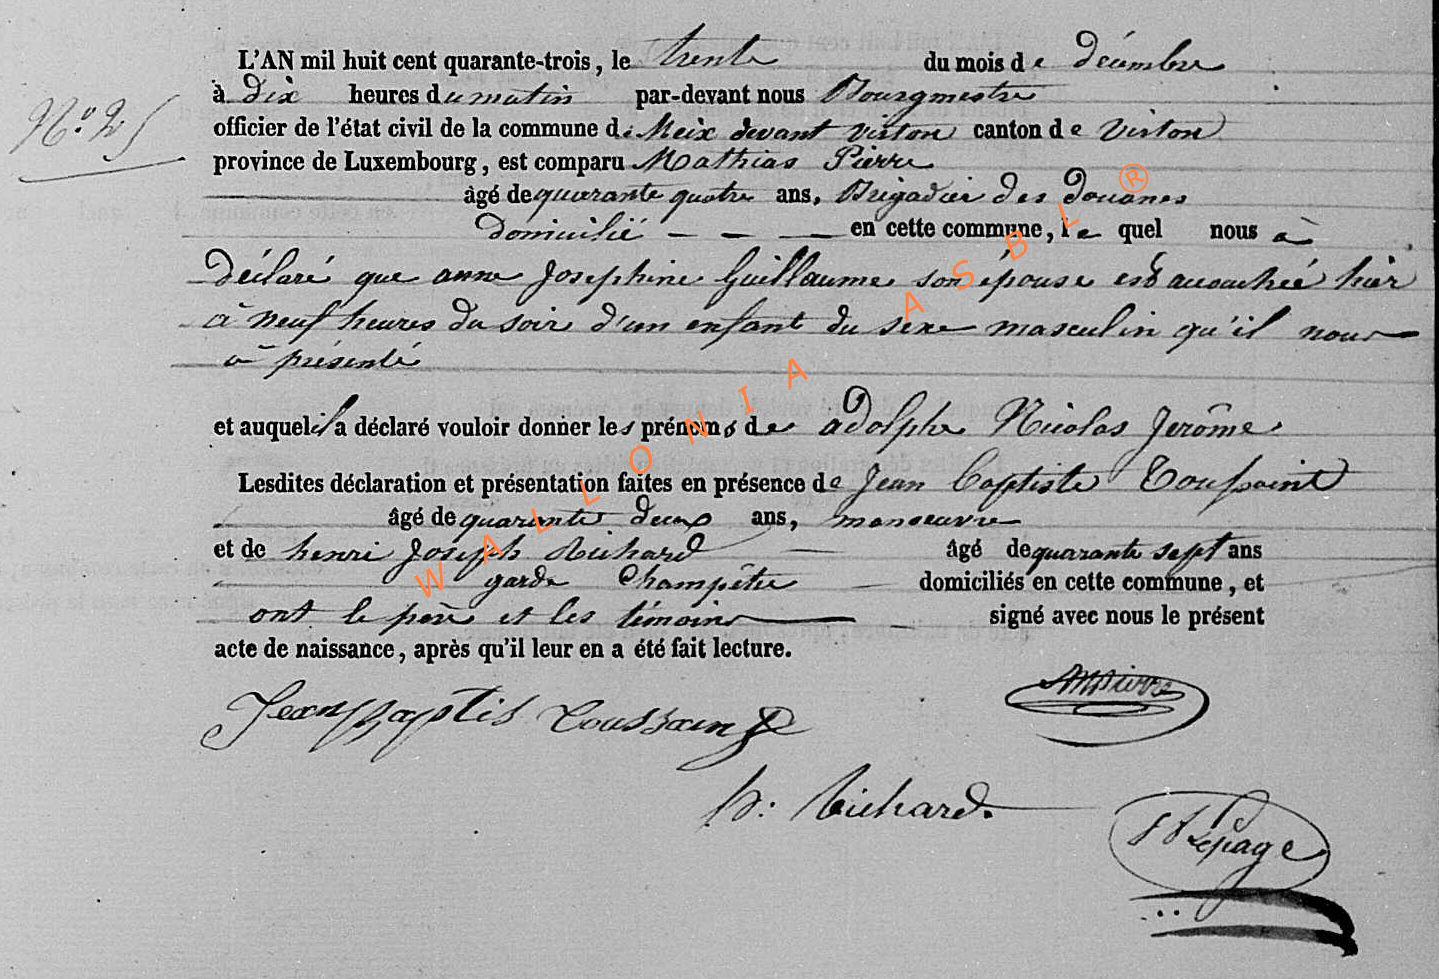 L'AN mil huit cent quarante-trois, le trente du mois de décembre
N.º 25
à Dix heures du matin par-devant nous Bourgmestre
officier de l'état civil de la commune de Meix devant virton canton de Virton
province de Luxembourg, est comparu Mathias Pierre
âgé de quarante quatre ans, Brigadier des douanes
domicilié — — — en cette commune, le quel nous à
déclaré que anne Josephine Guillaume son épouse est accouchée hier
à neuf heures du soir d'un enfant du sexe masculin qu'il nous
à présenté
et auquel il a déclaré vouloir donner les prénoms de adolphe Nicolas Jerôme.
Lesdites déclaration et présentation faites en présence de Jean Baptiste Toussaint
âgé de quarante deux ans, manoeuvre
et de henri Joseph Richard — âgé de quarante sept ans
garde Champêtre domiciliés en cette commune, et
ont le père et les témoins signé avec nous le présent
acte de naissance, après qu'il leur en a été fait lecture.
Jean Baptis Toussaint
MPierre
h: Richard.
Lepage
WALLONIA ASBL ®